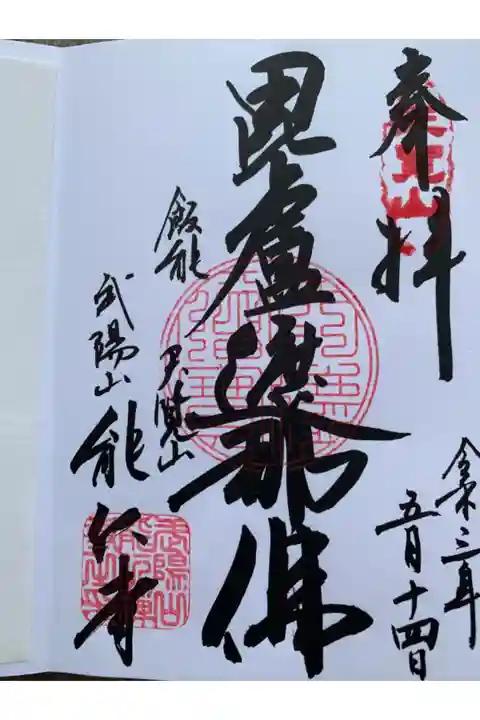 奉拝
令和三年
五月十四日
毘盧遮那佛
飯能
天覧山
武陽山 能仁寺